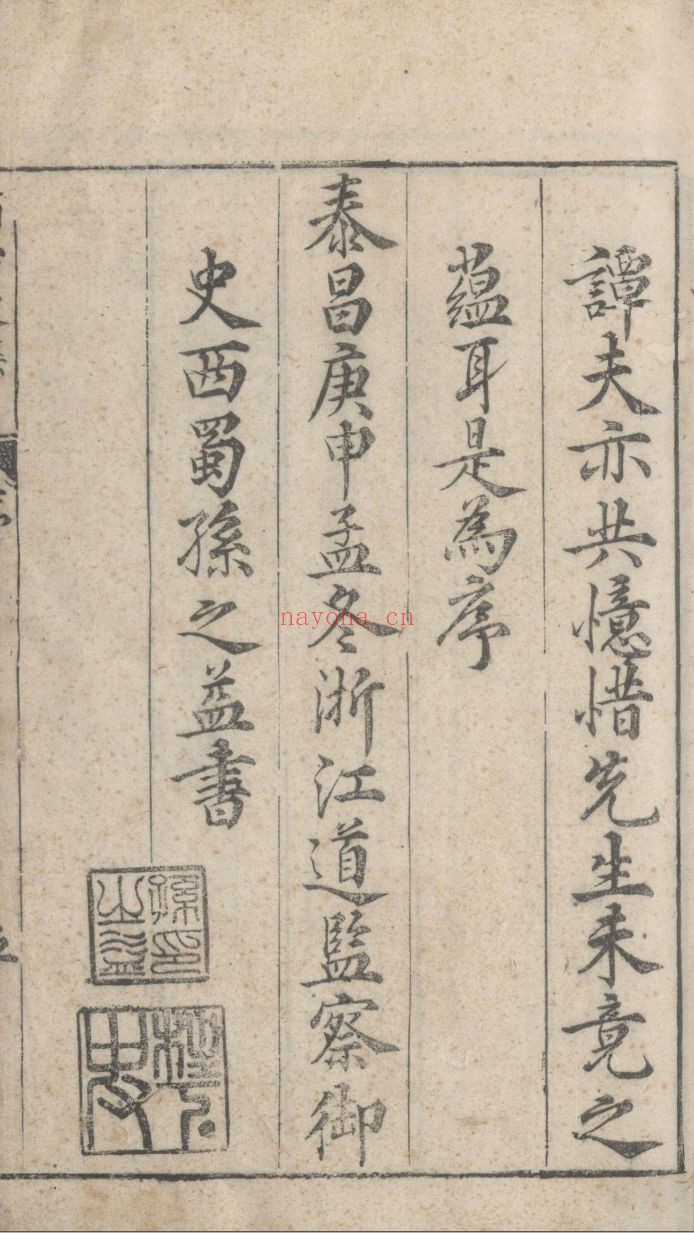 譚夫亦共憶惜先生未竟之
蘊耳是為序
泰昌庚申孟冬浙江道監察御
史西蜀孫之益書
孫印之益
nayona.cn